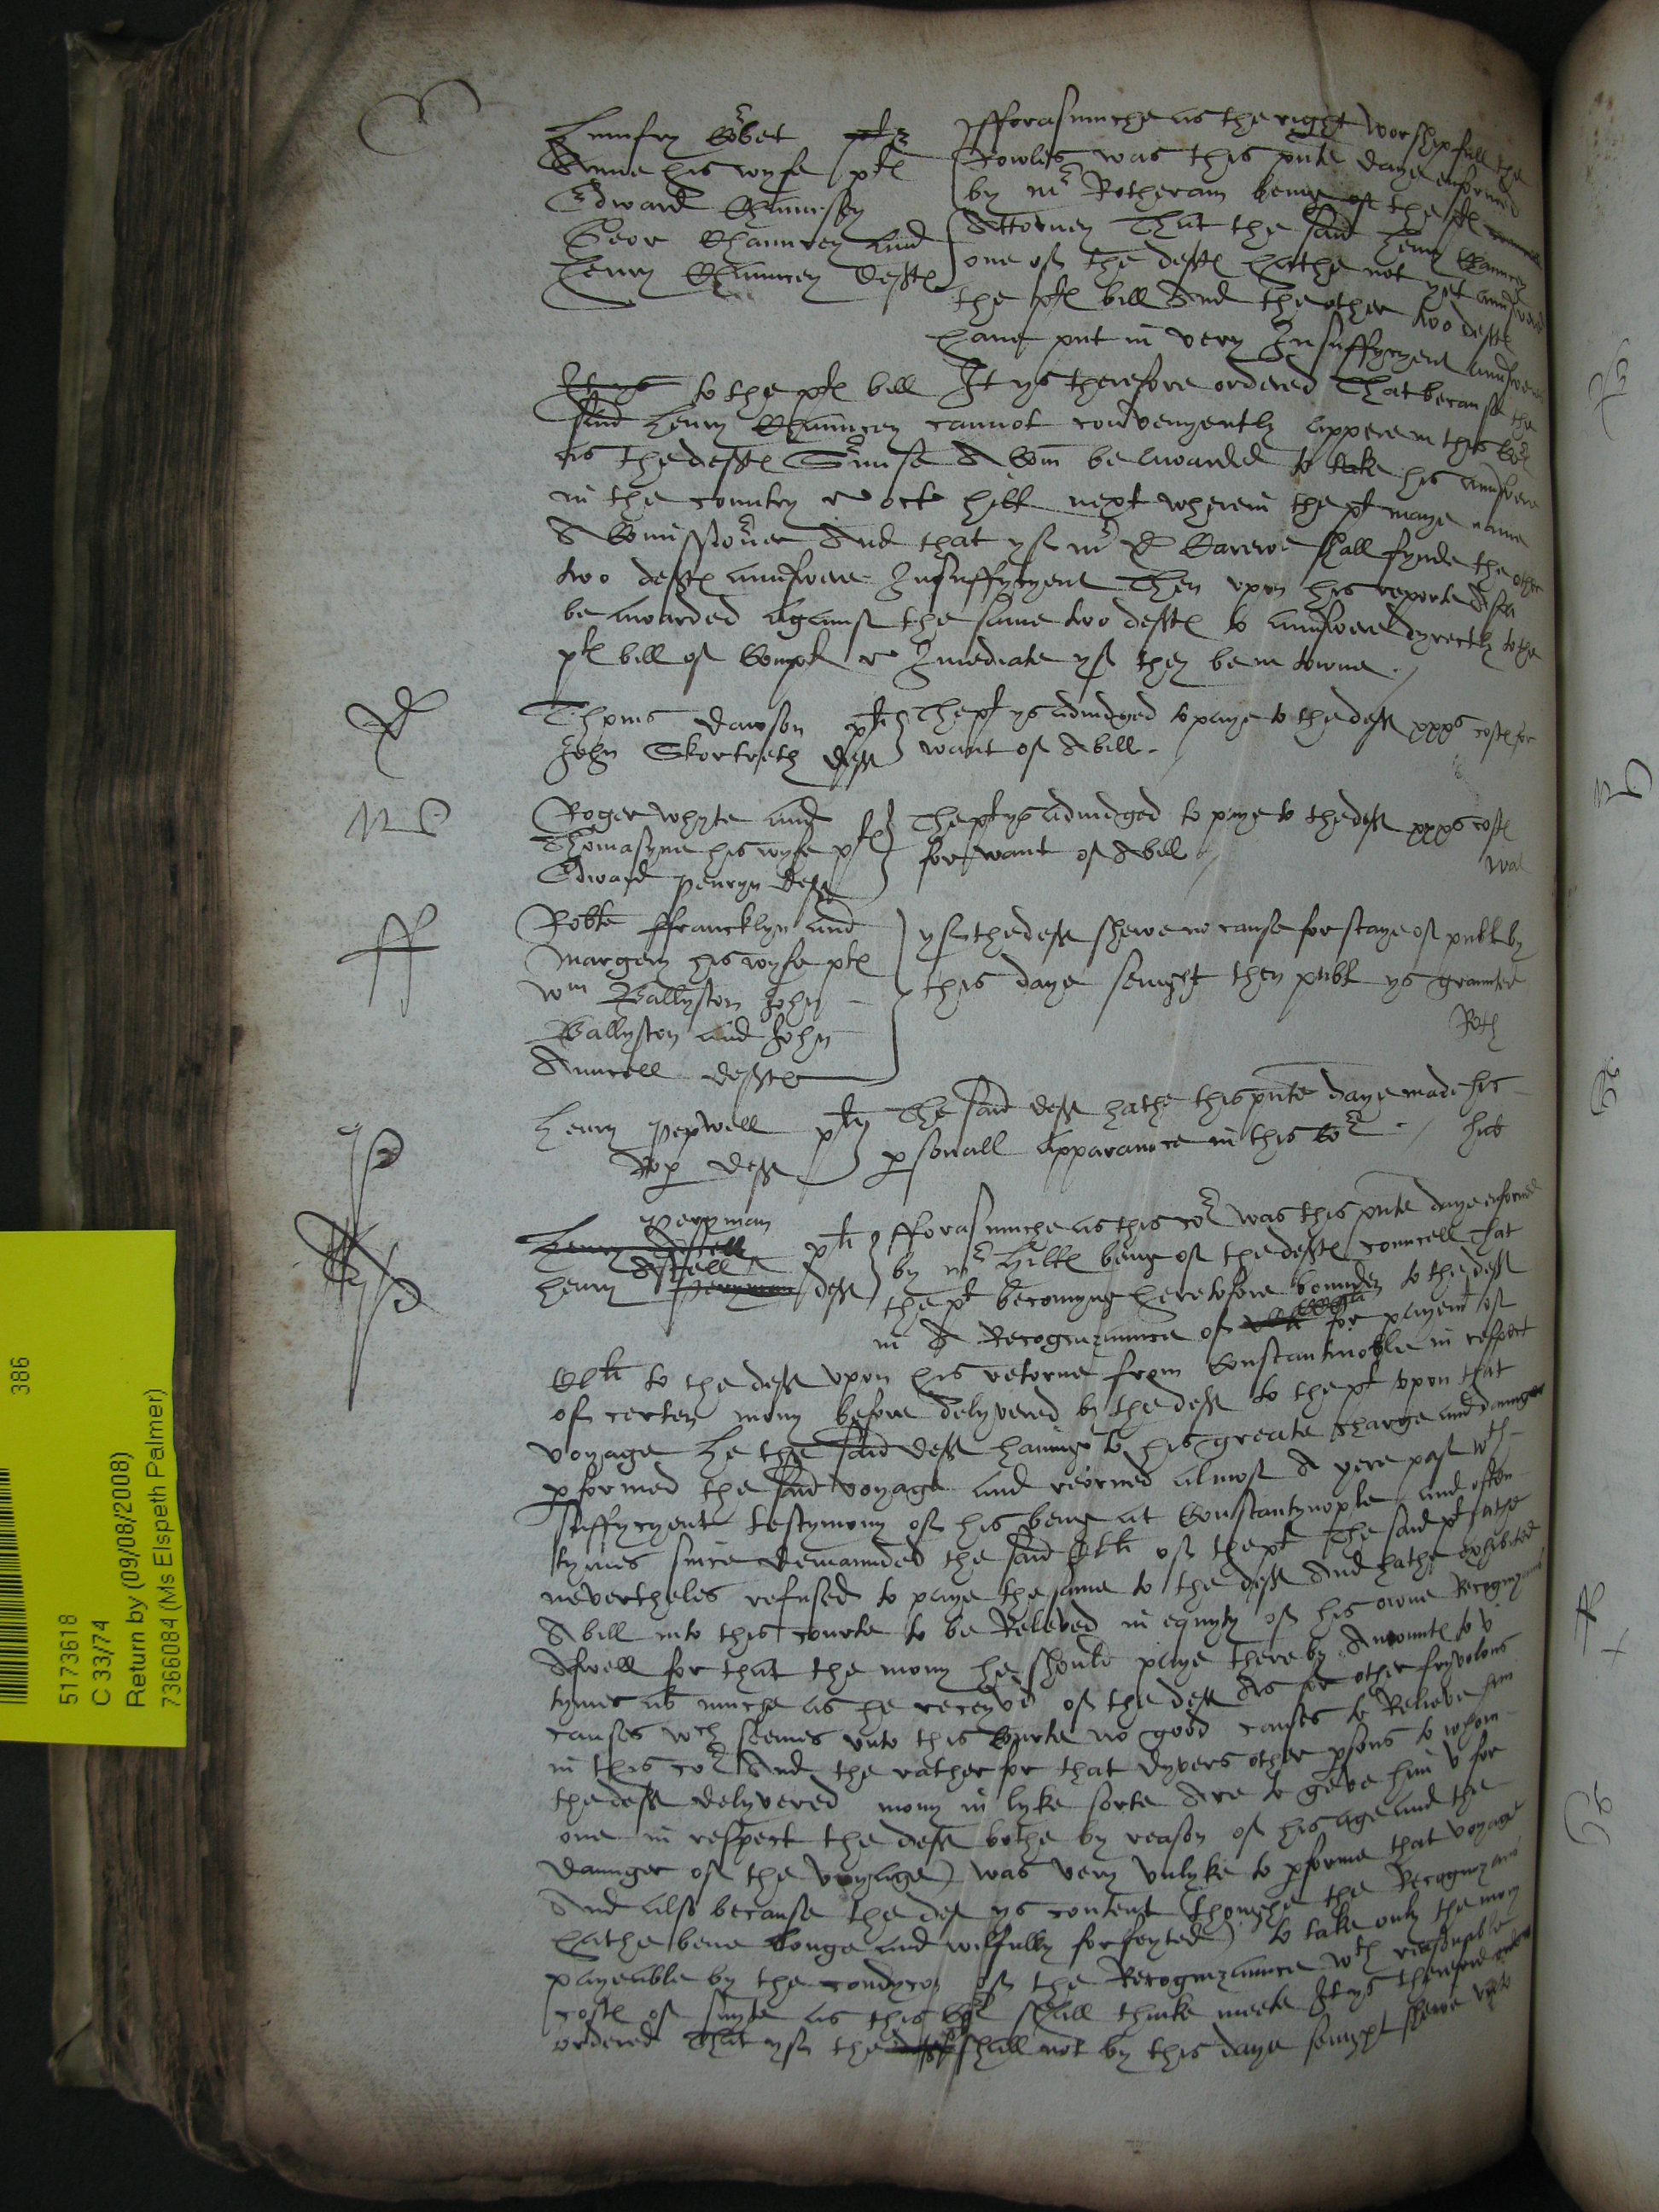 Humfry Corbet
Anne his wyfe pltes
Edward Chauncey
Geor Chauncey and
Henry Chauncey deftes
fforasmuche as the right worshipfull the
Rowles was this pnte daye enformed
by mr Rotheram beinge of the ptes
Attorney That the said Henry Chauncey
one of the deftes hathe not yet answered
the ptes bill And the other two deftes
have put in very Insuffycyent answeres
to the ptes bill It ys therefore ordered That because the
said Henry Chauncey cannot convenyently appere in this Cort
as the deftes surmise A Com be awarded to take his answere
in the country r oct hill next wherein the pt maye name
A Comissioner And that yf mr D Carewe shall fynde the other
two deftes answere Insuffycyent Then upon his reporte
be awarded against the same two deftes to answere dyrectly to the
ptes bill of Compt r Imediate yf they be in towne
Thoms Dawson plt
John Skortreth deft
The pt ys adiudged to paye to the deft xxxs costes for
want of A bill
Roger Whyte and
Thomasyne his wyfe ptes
Edward Penryn deft
The pt ys adiudged to paye to the deft xxxs costes
for want of A bill
Wal
Robte ffrancklyn and
Margery his wyfe ptes
Wm Ballyston John
Ballyston and John
Auncell deftes
yf the deft shewe no cause for staye of publ by
this daye sevenight then publ ys graunted
Roth
Henry Pepwell plt
Rop deft
The said deft hathe this pnte daye made his
psonall apparaunce in this Cort
Peryman
plt
Henry Astell deft
fforasmuche as this cort was this pnte daye enformed
by mr Hill beinge of the deftes councell That
the pt becomyng heretofore bounden to the deft
in A Recognizaunce of for payent of
to the deft upon his retorne from Constantinoble in respect
of certen mony before delyvered by the deft to the pt upon that
voyage He the said deft having to his greate charge and daunger
pformed the said voyage and retorned almost A yere past wth
suffycyent testymony of his being at Constantynople and often
tymes since demaunded the said of the pt The said pt hathe
nevertheles refused to paye the same to the deft And hathe exhibited
A bill into this courte to be Releved in equyty of his owne Recognyzaunce
Aswell for that the mony he should paye thereby Amountes to v
tymes as muche as he receyved of the deft As for other fryvolous
causes wch seemes unto this Courte no good causes to Relieve him
in this cort And the rather for that dyvers other psons to whom
the deft delyvered mony in lyke sorte Are to geve him v for
one in respect the deft bothe by reason of his age and the
daunger of the voyage) was very unlyke to pforme that voyage
And also because the deft ys content (thoughe the Recognyzaunce
hathe bene longe and wilfully forfeyted) to take only the mony
payeable by the condycon of the Recognizaunce wth reasonable
costes of suyte as this Cort shall thinke meete It ys therefore
ordered That yf the shall not by this daye sevenight shewe unto
5173618 386
C 33/74
Return by (09/08/2008)
7366084 (Ms Elspeth Palmer)